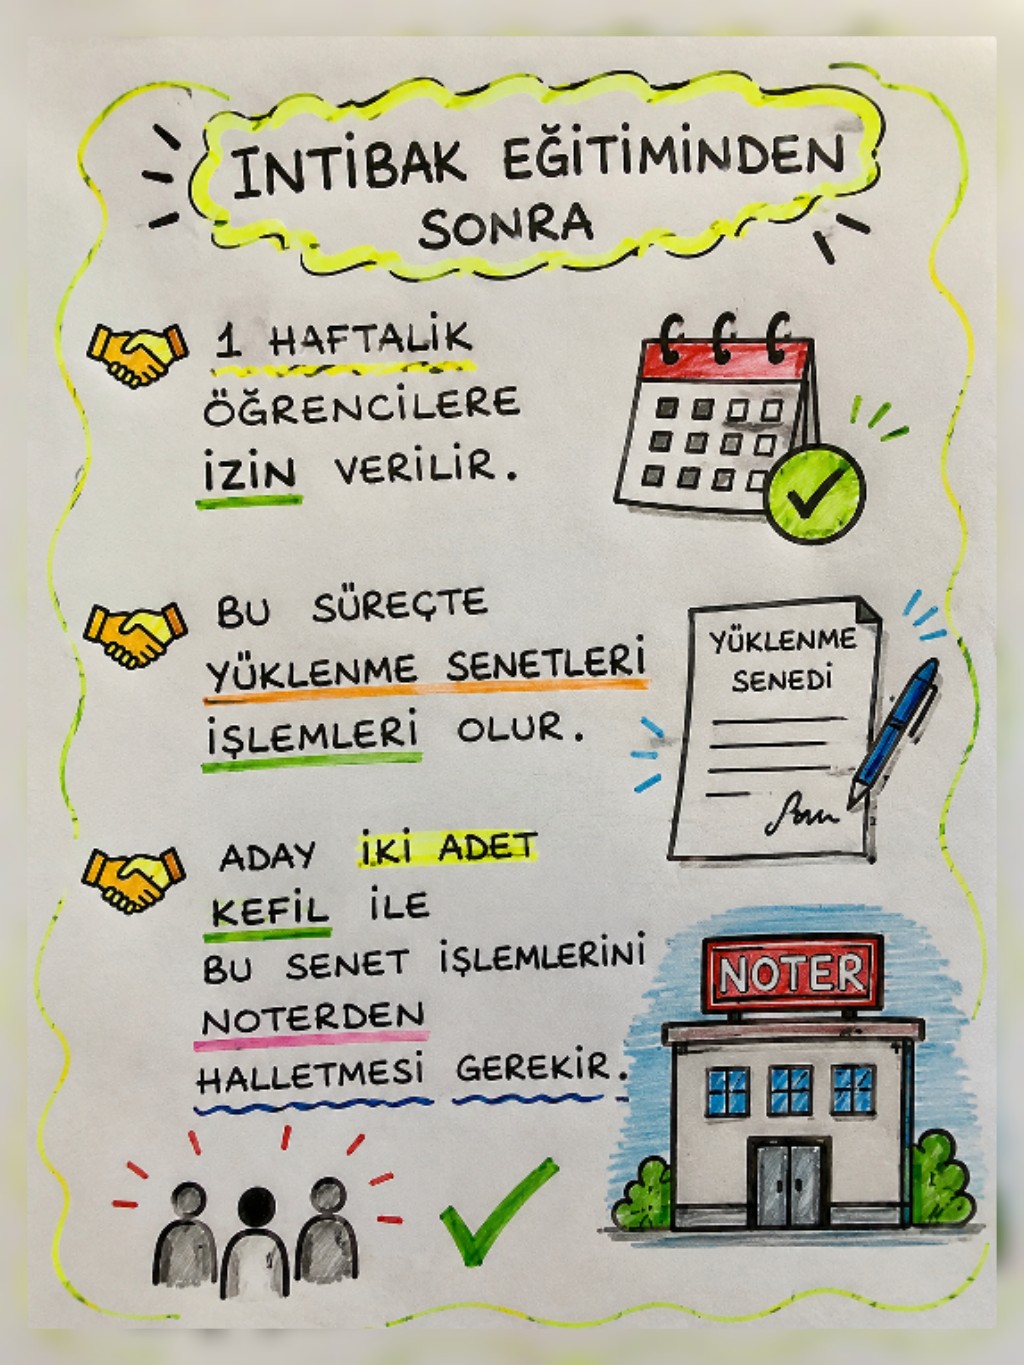 INTİBAK EĞİTİMİNDEN
SONRA
1 HAFTALİK
ÖĞRENCİLERE
İZİN VERİLİR.
BU SÜREÇTE
YÜKLENME SENETLERİ
İŞLEMLERİ OLUR.
YÜKLENME
SENEDİ
ADAY İKİ ADET
KEFİL İLE
BU SENET İŞLEMLERİNİ
NOTERDEN
HALLETMESİ GEREKİR.
NOTER